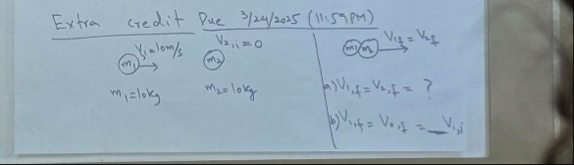 Extra credit Due 3/24/2025 (11:59PM)
Vi=10m/s
V2,i=0
m1
m2
m1=10kg
m2=10kg
m1 m2
V1f=V2f
a) V1,f=V2,f= ?
b) V1,f = V2,f = __V1,i